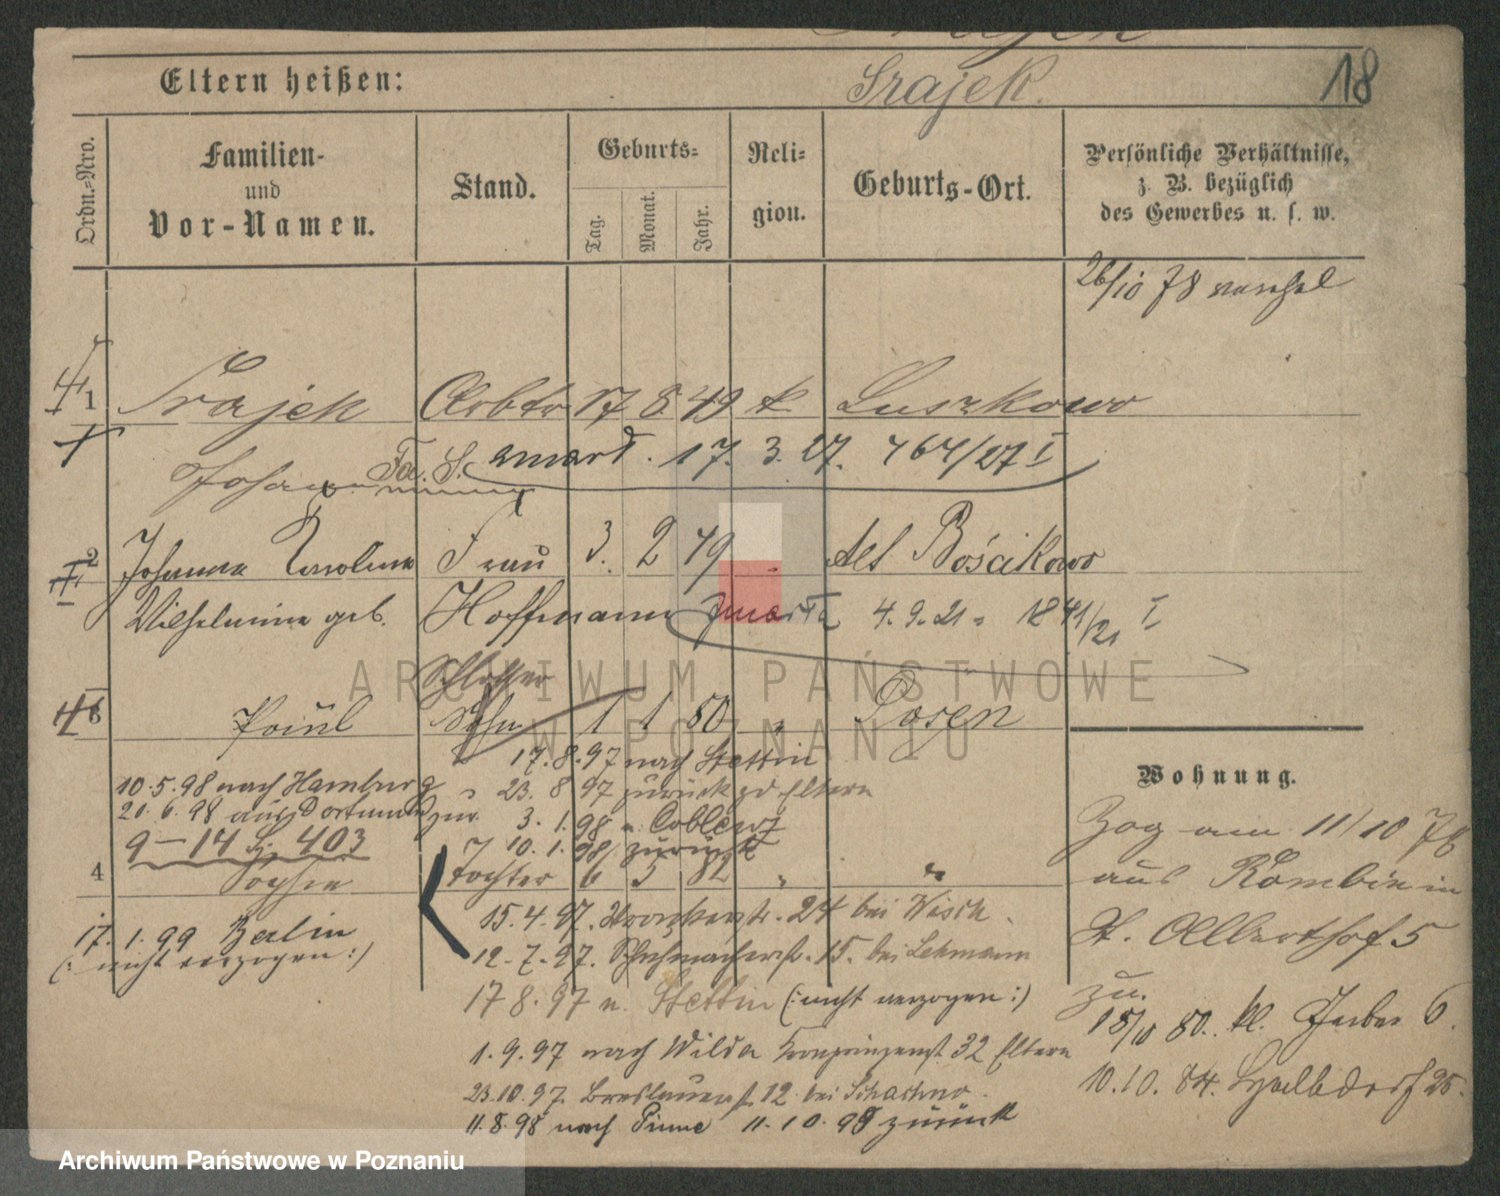 Srajek.
18
Eltern heißen:
Ordn.-Nro.
Familien-
und
Vor-Namen.
Stand.
Geburts-
Tag.
Monat.
Jahr.
Reli-
gion.
Geburts-Ort.
Persönliche Verhältnisse,
z. B. bezüglich
des Gewerbes u. s. w.
26/10 78
1 Srajek Arbtr 17 8 49 k Luszkowo
Johann zmarł. 17. 3. 27. 764/27 I
2 Johanna Karoline Frau 3. 2 49 Alt Bościkowo
Wilhelmine geb. Hoffmann zmarła 4. 9. 21 = 1841/21 I
Schlosser
Paul Sohn 1 1 80 " Posen
17.8.97 nach Stettin
10.5.98 nach Hamburg 23. 8 97 zurück zd Eltern
21. 6. 98 aus Dortmund zur. 3. 1. 98 n. Coblenz
9-14 403 10. 1. 98 zurück
4 Sophie Tochter 6 5 82 " "
15.4.97. 24 bei Wisch.
17. 1. 99 Berlin
12.7.97. Schuhmacherst. 15. bei Lehmann
(: nicht verzogen :)
17 8. 97 n. Stettin (: nicht verzogen :)
1. 9. 97 nach Wilda Kronprinzenst 32 Eltern
23.10.97. Breslauerst. 12 bei
11. 8. 98 nach Pinne 11. 10. 98 zurück
Wohnung.
Zog am 11/10 78
aus Rombin in
St. Adalberthof 5
zu.
15/10 80. kl. Gerber 6.
10.10. 84. Halbdorf 25.
ARCHIWUM PAŃSTWOWE
W POZNANIU
Archiwum Państwowe w Poznaniu